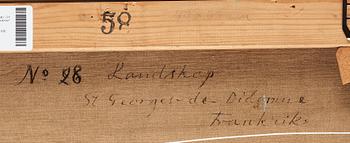 58
No 28 Landskap
St Georges-de-Didonne
Frankrike